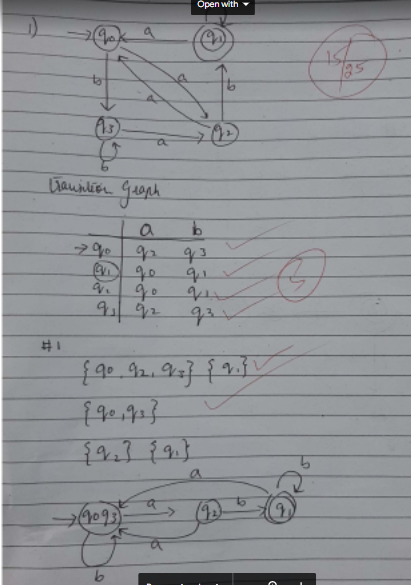 Open with
1)
q0 a q1
b a a b
15/25
q3 a q2
b
Transition Graph
a b
→ q0 q2 q3
q1 q0 q1
q2 q0 q1
q3 q2 q3
3
#1
{q0, q2, q3} {q1}
{q0, q3}
{q2} {q1}
a b
q0q3 a q2 b q1
a
b